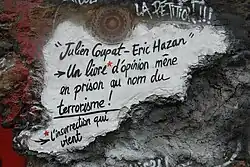 LA PETITIO !!!
"Julien Coupat - Eric Hazan"
→ Un livre* d'opinion mène
en prison au nom du
terrorisme !
* L'insurrection qui
vient